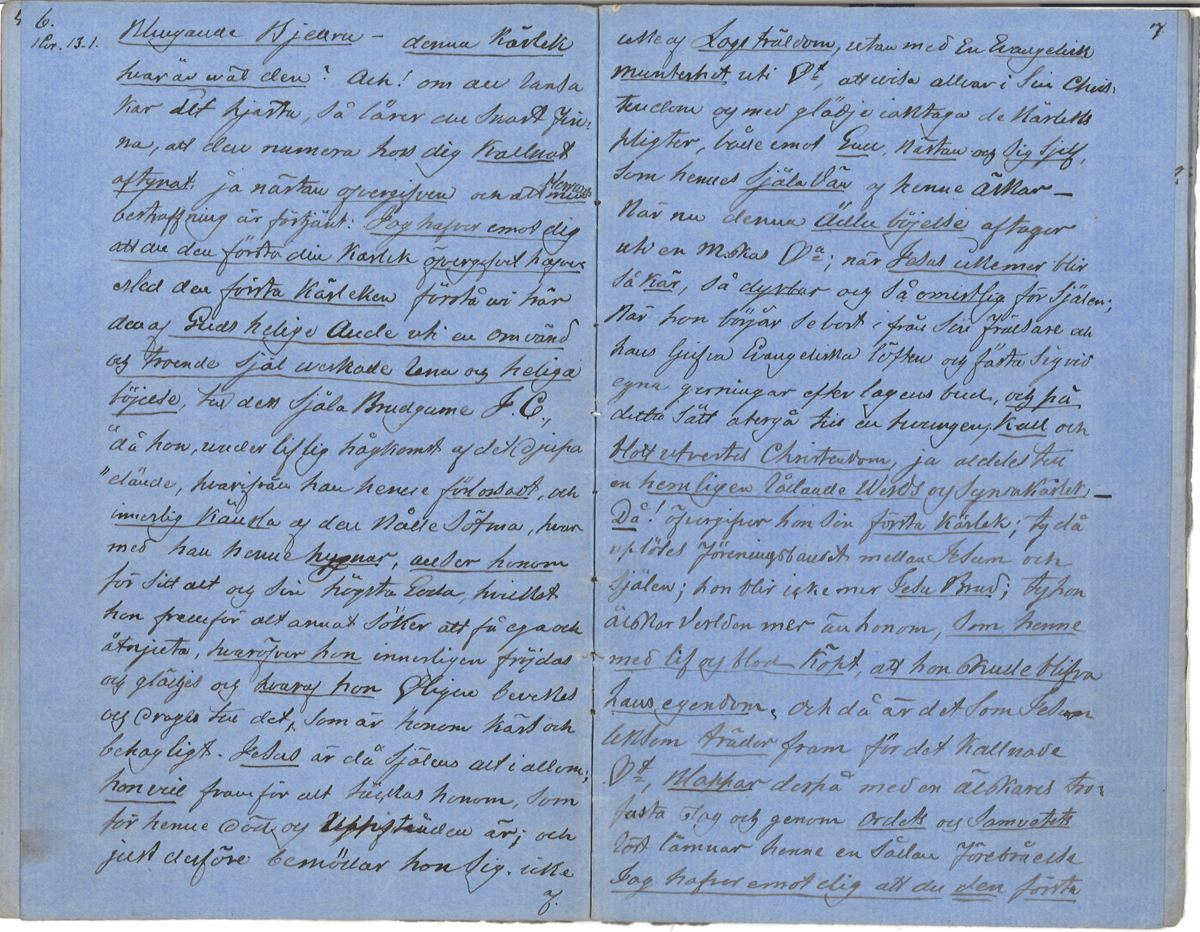 6.
1 Cor. 13.1.
Klingande Bjellra – denna Kärlek
hvar är wäl den? Ack! om du ransa
kar ditt hjerta, så lärer du snart fin-
na, att den numera hos dig Kallnat
aftynat: ja nästan öfvergifven och att Herrans
bestraffning är förtjänt: Jag hafver emot dig
att du den första din Kärlek öfvergifvit hafver.
Med den första Kärleken förstå wi här
den af Guds helige Ande uti en omvänd
och troende själ werkade rena och heliga
böjelse, till dess Själa Brudgume J. C.,
"då hon, under liflig hågkomst af det djupa
"elände, hvarifrån han henne förlossadt, och
innerlig känsla af den Nåde Sötma, hvar
med han henne hugnar, anser honom
för sitt alt och sin högsta Goda, hvilket
hon framför alt annat söker att få ega och
åtnjuta, hvaröfver hon innerligen fröjdas
och glädjes och hvaraf hon öligen beveckes
och drages till det, som är honom kärt och
behagligt. Jesus är då själens alt i allom;
hon vill framför alt täckas honom, som
för henne död och Uppstånden är; och
just derföre bemödar hon sig. icke
af.
7
icke af Lags träldom, utan med En Evangelisk
munterhet uti Ht, att wisa allvar i sin Chris-
tendom och med glädje iakttaga de Kärleks
pligter, både emot Gud, Nästan och sig sjelf,
som hennes Själa Vän af henne älskar –
När nu denna ädla böjelse aftager
uti en M:skas Ha; när Jesus icke mer blir
så Kär, så dyrbar och så omistlig för Själen;
När hon börjar se bort ifrån sin Frälsare och
hans ljufva Evangeliska löften och fästa sig vid
egna gerningar efter lagens bud, och på
detta sätt återgå till en tvungen, Kall och
blott utvertes Christendom, ja aldeles till
en hemligen rådande Werlds och Syndakärlek –
Då! öfvergifver hon sin första Kärlek; ty då
uplöses Föreningsbandet mellan Jesum och
Själen; hon blir icke mer Jesu Brud; ty hon
älskar Verlden mer än honom, som henne
med lif och blod Köpt, att hon skulle blifva
hans egendom. Och då är det som Jesus
liksom träder fram för det Kallnade
Ht, Klappar derpå med en älskares tro-
fasta slag och genom ordets och samvetets
röst lämnar henne en sådan Förebråelse
Jag hafver emot dig att du den första